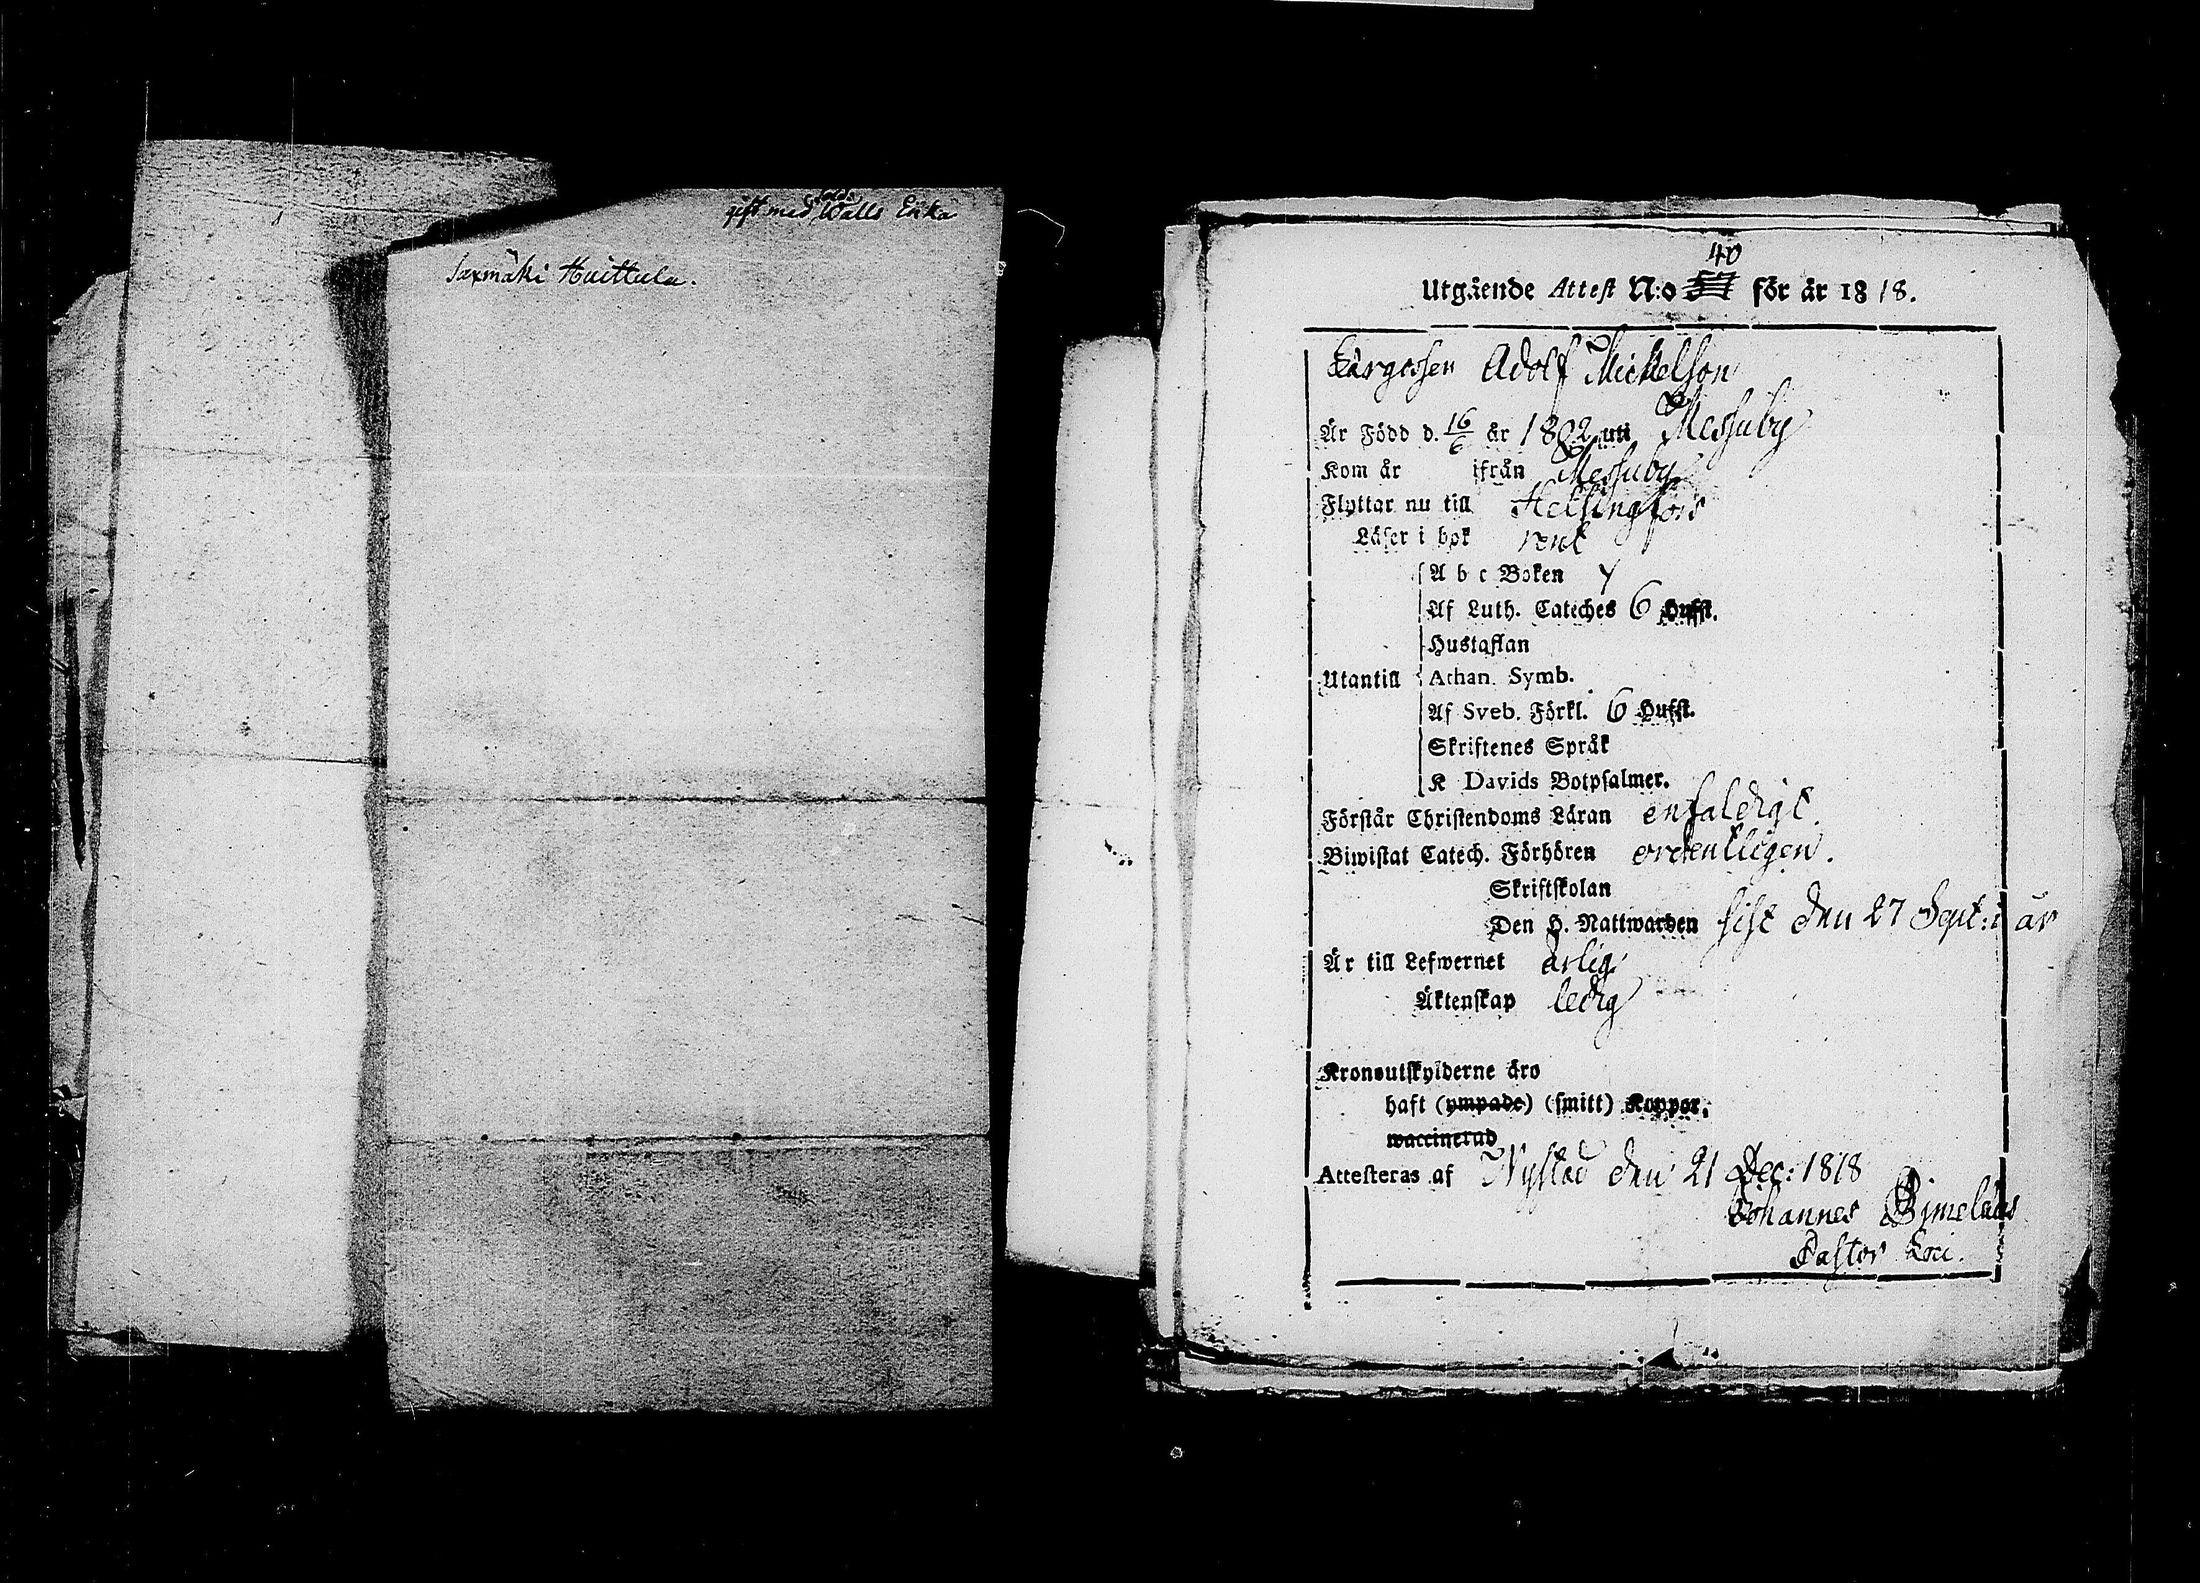 gift med Walls Enka
Saxmäki Huittula.
40
Utgående Attest N:o för år 1818.
Adolf Mickelson
Är Född d. 16/6 år 1802 uti Messuby
Kom år ifrån Messuby
Flyttar nu till Helsingfors
Läser i bok rent
A b c Boken
Af Luth. Cateches 6 Hufst.
Hustaflan
Utantill Athan. Symb.
Af Sveb. Förkl. 6 Hufst.
Skriftenes Språk
K Davids Botpsalmer.
Förstår Christendoms Läran enfaldigt.
Biwistat Catech. Förhören ordentligen.
Skriftskolan
Den H. Nattwarden sist den 27 Sept: i år
Är till Lefwernet ärlig
Äktenskap ledig
Kronoutskylderne äro
haft (ympade) (smitt) Koppor.
waccinerad
Attesteras af Nystad den 21 Dec: 1818
Johannes
Pastor Loci.